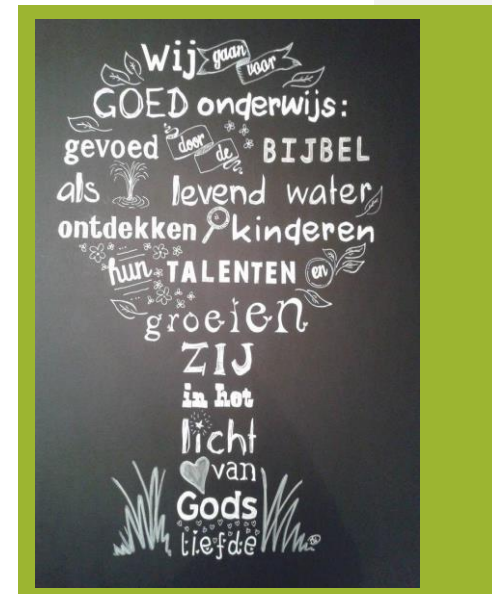 Wij gaan voor
GOED onderwijs:
gevoed door de BIJBEL
als levend water
ontdekken kinderen
hun TALENTEN en
groeien
ZIJ
in het
licht
van
Gods
liefde